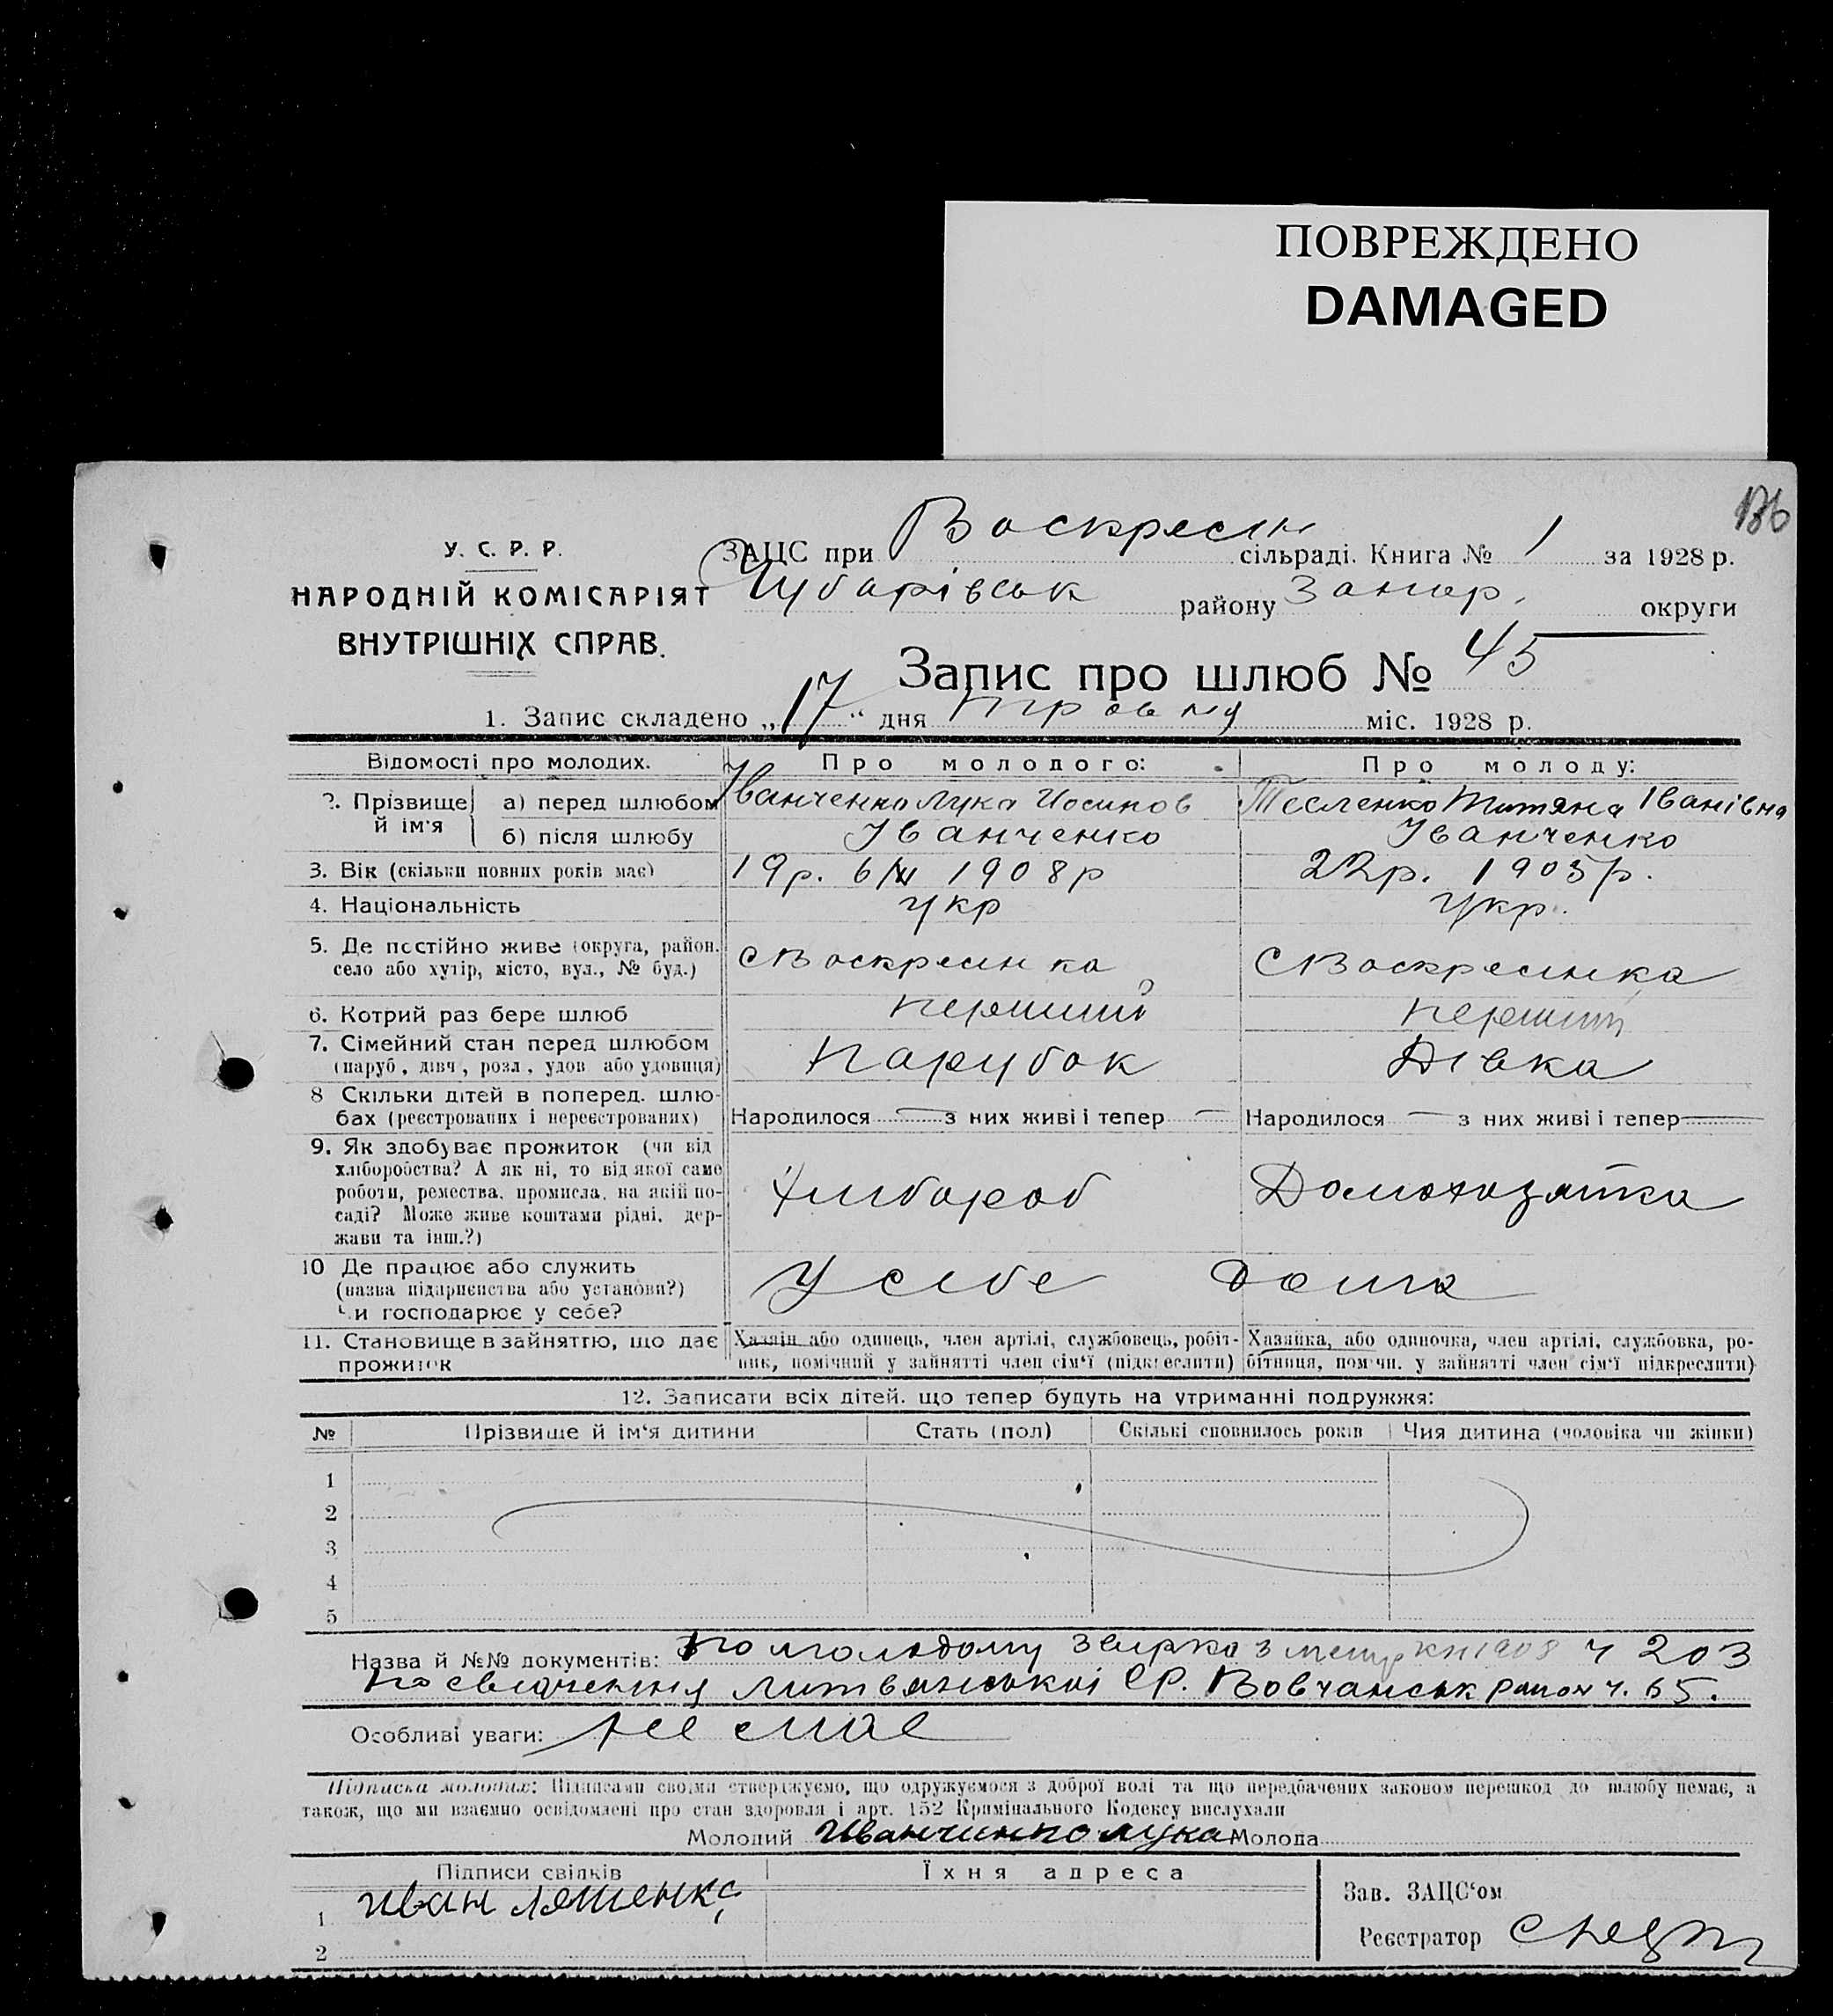 ПОВРЕЖДЕНО
DAMAGED
У. С. Р. Р.
НАРОДНІЙ КОМІСАРІЯТ
ВНУТРІШНІХ СПРАВ.
ЗАЦС при Воскресін сільраді. Книга № 1 за 1928 р.
Чубарівськ району Запор. округи
Запис про шлюб № 45
1. Запис складено „17“ дня міс. 1928 р.
Відомості про молодих. Про молодого: Про молоду:
2. Прізвище й ім'я а) перед шлюбом Іванченко Лука Иосипов Тесленко Титяна Іванівна
б) після шлюбу Іванченко Іванченко
3. Вік (скільки повних років має) 19р. 1908р 22р. 1905р.
4. Національність укр укр.
5. Де постійно живе (округа, район, село або хутір, місто, вул., № буд.) с Воскресинка с Воскресинка
6. Котрий раз бере шлюб перший перший
7. Сімейний стан перед шлюбом (паруб, дівч, розл, удов або удовиця) парубок Дівка
8 Скільки дітей в поперед. шлюбах (реєстрованих і нереєстрованих) Народилося — з них живі і тепер — Народилося — з них живі і тепер —
9. Як здобуває прожиток (чи від хліборобства? А як ні, то від якої саме роботи, ремества, промисла, на якій посаді? Може живе коштами рідні, держави та інш.?) Хлибороб Домохазяйка
10 Де працює або служить (назва підприєиства або установи?) Чи господарює у себе? У себе дома
11. Становище в зайняттю, що дає прожиток Хазяїн або одинець, член артілі, службовець, робітник, помічний у зайнятті член сім'ї (підкреслити) Хазяйка, або одиночка, член артілі, службовка, робітниця, помічн. у зайнятті член сім'ї підкреслити)
12. Записати всіх дітей, що тепер будуть на утриманні подружжя:
№ Прізвище й ім'я дитини Стать (пол) Скількі сповнилось років Чия дитина (чоловіка чи жінки)
1
2
3
4
5
Назва й №№ документів: по молодому звирка з метр кн 1908 ч 203
посвідчення Литвянської СР. Вовчанськ район ч. 65.
Особливі уваги: не має
Підписка молодих: Підписами своїми стверджуємо, що одружуємося з доброї волі та що передбачених законом перешкод до шлюбу немає, а
також, що ми взаємно освідомлені про стан здоровля і арт. 152 Кримінального Кодексу вислухали
Молодий Иванчинко лука Молода
Підписи свідків Їхня адреса
1 иван
Зав. ЗАЦС'ом
2
Реєстратор